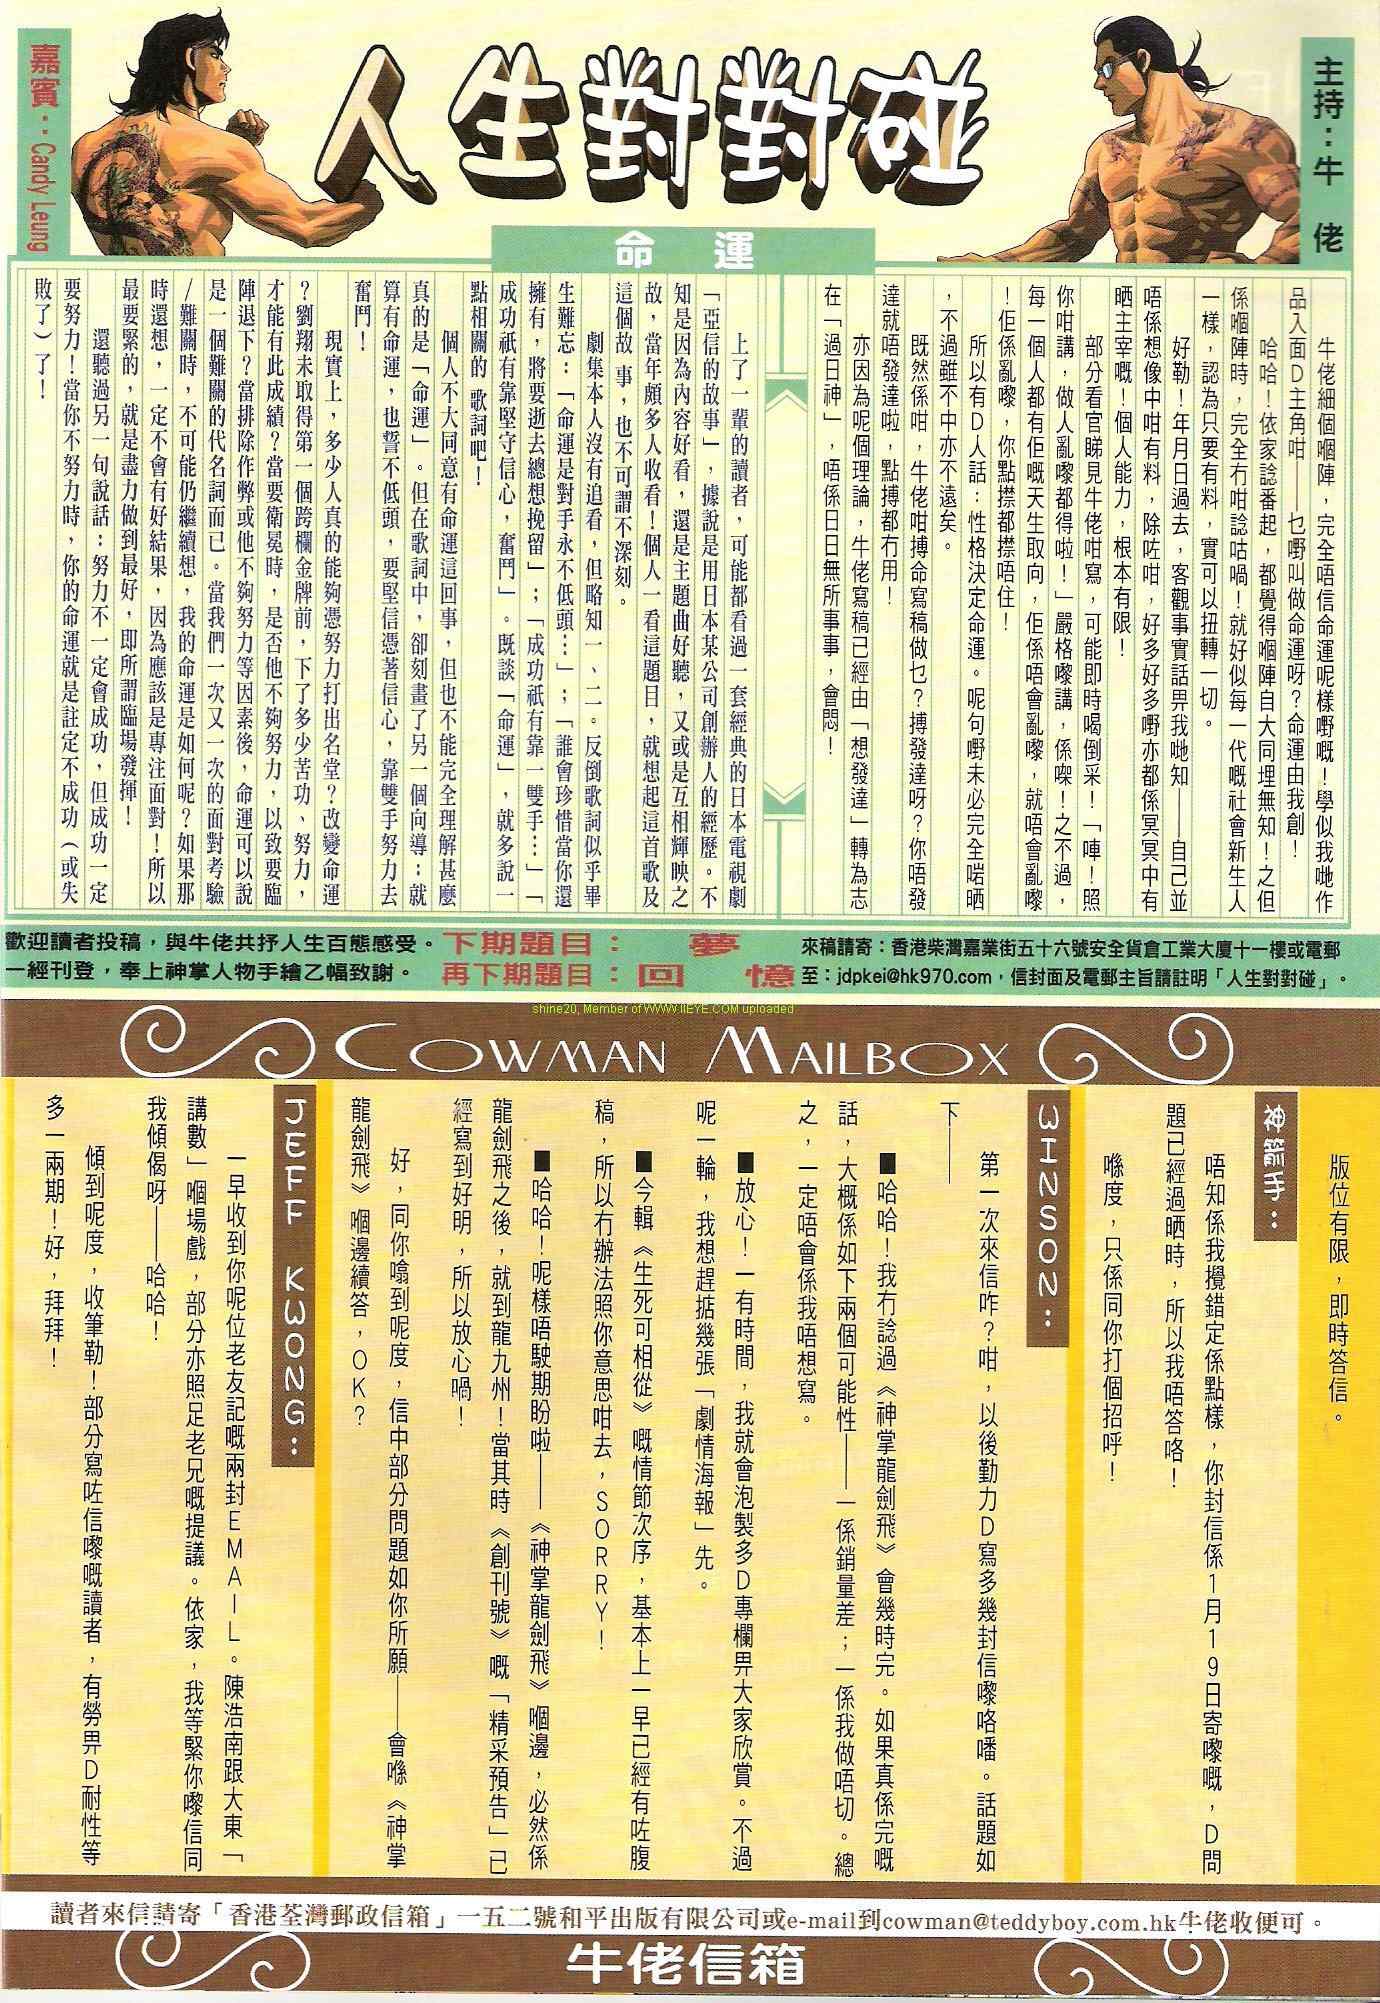 主持：牛佬
人生對對碰
嘉賓：Candy Leung
命運
牛佬細個嗰陣，完全唔信命運呢樣嘢嘅！學似我哋作
品入面D主角咁——乜嘢叫做命運呀？命運由我創！
哈哈！依家諗番起，都覺得嗰陣自大同埋無知！之但
係嗰陣時，完全冇咁諗咕喎！就好似每一代嘅社會新生人
一樣，認為只要有料，實可以扭轉一切。
好勒！年月日過去，客觀事實話畀我哋知——自己並
唔係想像中咁有料，除咗咁，好多好多嘢亦都係冥冥中有
晒主宰嘅！個人能力，根本有限！
部分看官睇見牛佬咁寫，可能即時喝倒采！「啤！照
你咁講，做人亂嚟都得啦！」嚴格嚟講，係㗎！之不過，
每一個人都有佢嘅天生取向，佢係唔會亂嚟，就唔會亂嚟
！佢係亂嚟，你點㩒都㩒唔住！
所以有D人話：性格決定命運。呢句嘢未必完全啱晒
，不過雖不中亦不遠矣。
既然係咁，牛佬咁搏命寫稿做乜？搏發達呀？你唔發
達就唔發達啦，點搏都冇用！
亦因為呢個理論，牛佬寫稿已經由「想發達」轉為志
在「過日神」，唔係日日無所事事，會悶！
上了一輩的讀者，可能都看過一套經典的日本電視劇
「亞信的故事」，據說是用日本某公司創辦人的經歷。不
知是因為內容好看，還是主題曲好聽，又或是互相輝映之
故，當年頗多人收看！個人一看這題目，就想起這首歌及
這個故 事，也不可謂不深刻。
劇集本人沒有追看，但略知一、二。反倒歌詞似乎畢
生難忘：「命運是對手永不低頭…」；「誰會珍惜當你還
擁有，將要逝去總想挽留」；「成功祇有靠一雙手…」「
成功祇有靠堅守信心，奮鬥」。既談「命運」，就多說一
點相關的 歌詞吧！
個人不大同意有命運這回事，但也不能完全理解甚麼
真的是「命運」。但在歌詞中，卻刻畫了另一個向導：就
算有命運，也誓不低頭，要堅信憑著信心，靠雙手努力去
奮鬥！
現實上，多少人真的能夠憑努力打出名堂？改變命運
？劉翔未取得第一個跨欄金牌前，下了多少苦功、努力，
才能有此成績？當要衛冕時，是否他不夠努力，以致要臨
陣退下？當排除作弊或他不夠努力等因素後，命運可以說
是一個難關的代名詞而已。當我們一次又一次的面對考驗
/難關時，不可能仍繼續想，我的命運是如何呢？如果那
時還想，一定不會有好結果，因為應該是專注面對！所以
最要緊的，就是盡力做到最好，即所謂臨場發揮！
還聽過另一句說話：努力不一定會成功，但成功一定
要努力！當你不努力時，你的命運就是註定不成功（或失
敗了）了！
歡迎讀者投稿，與牛佬共抒人生百態感受。
一經刊登，奉上神掌人物手繪乙幅致謝。
下期題目：夢
再下期題目：回憶
來稿請寄：香港柴灣嘉業街五十六號安全貨倉工業大廈十一樓或電郵
至：jdpkei@hk970.com，信封面及電郵主旨請註明「人生對對碰」。
shine20, Member of WWW.IIEYE.COM uploaded
COWMAN MAILBOX
版位有限，即時答信。
神龍手：
唔知係我攪錯定係點樣，你封信係1月19日寄嚟嘅，D問
題已經過晒時，所以我唔答咯！
喺度，只係同你打個招呼！
WINSON：
第一次來信咋？咁，以後勤力D寫多幾封信嚟咯噃。話題如
下——
■哈哈！我冇諗過《神掌龍劍飛》會幾時完。如果真係完嘅
話，大概係如下兩個可能性——一係銷量差；一係我做唔切。總
之，一定唔會係我唔想寫。
■放心！一有時間，我就會泡製多D專欄畀大家欣賞。不過
呢一輪，我想趕掂幾張「劇情海報」先。
■今輯《生死可相從》嘅情節次序，基本上一早已經有咗腹
稿，所以冇辦法照你意思咁去，SORRY！
■哈哈！呢樣唔駛期盼啦——《神掌龍劍飛》嗰邊，必然係
龍劍飛之後，就到龍九州！當其時《創刊號》嘅「精采預告」已
經寫到好明，所以放心喎！
好，同你噏到呢度，信中部分問題如你所願——會喺《神掌
龍劍飛》嗰邊續答，OK？
JEFF KWONG：
一早收到你呢位老友記嘅兩封EMAIL。陳浩南跟大東「
講數」嗰場戲，部分亦照足老兄嘅提議。依家，我等緊你嚟信同
我傾偈呀——哈哈！
傾到呢度，收筆勒！部分寫咗信嚟嘅讀者，有勞畀D耐性等
多一兩期！好，拜拜！
讀者來信請寄「香港荃灣郵政信箱」一五二號和平出版有限公司或e-mail到cowman@teddyboy.com.hk牛佬收便可。
牛佬信箱